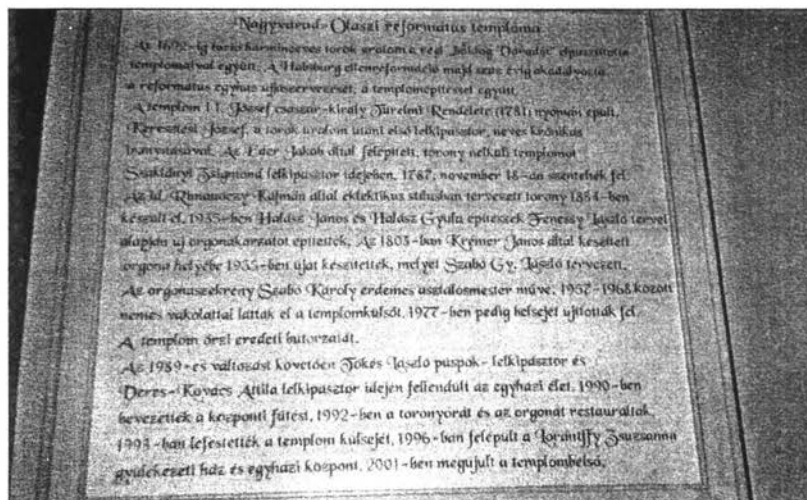 Nagyvárad-Olaszi református temploma
Az 1692-ig tartó harmincéves török uralom a régi „Boldog Váradot” elpusztította
templomaival együtt. A Habsburg ellenreformáció majd száz évig akadályozta
a református egyház újjászervezését, a templomépítéssel együtt.
A templom II. József császár-király Türelmi Rendelete (1781) nyomán épült,
Keresztesi József, a török uralom utáni első lelkipásztor, neves krónikás
irányításával. Az Éder Jakab által felépített, torony nélküli templomot
Zsigmond lelkipásztor idejében, 1787. november 18-án szentelték fel.
Az id. Rimanóczy Kálmán által eklektikus stílusban tervezett torony 1854-ben
készült el. 1935-ben Halász János és Halász Gyula építészek Fenessy László tervei
alapján új orgonakarzatot építettek. Az 1803-ban Krémer János által készített
orgona helyébe 1935-ben újat készítettek, melyet Szabó Gy. László tervezett.
Az orgonaszekrény Szabó Károly érdemes asztalosmester műve. 1957-1968 között
nemes vakolattal látták el a templomkülsőt, 1977-ben pedig belsejét újították fel.
A templom őrzi eredeti bútorzatát.
Az 1989-es változást követően Tőkés László püspök-lelkipásztor és
Veres-Kovács Attila lelkipásztor idején fellendült az egyházi élet. 1990-ben
bevezették a központi fűtést, 1992-ben a toronyórát és az orgonát restaurálták,
1993-ban lefestették a templom külsejét, 1996-ban felépült a Lorántffy Zsuzsanna
gyülekezeti ház és egyházi központ, 2001-ben megújult a templombelső.